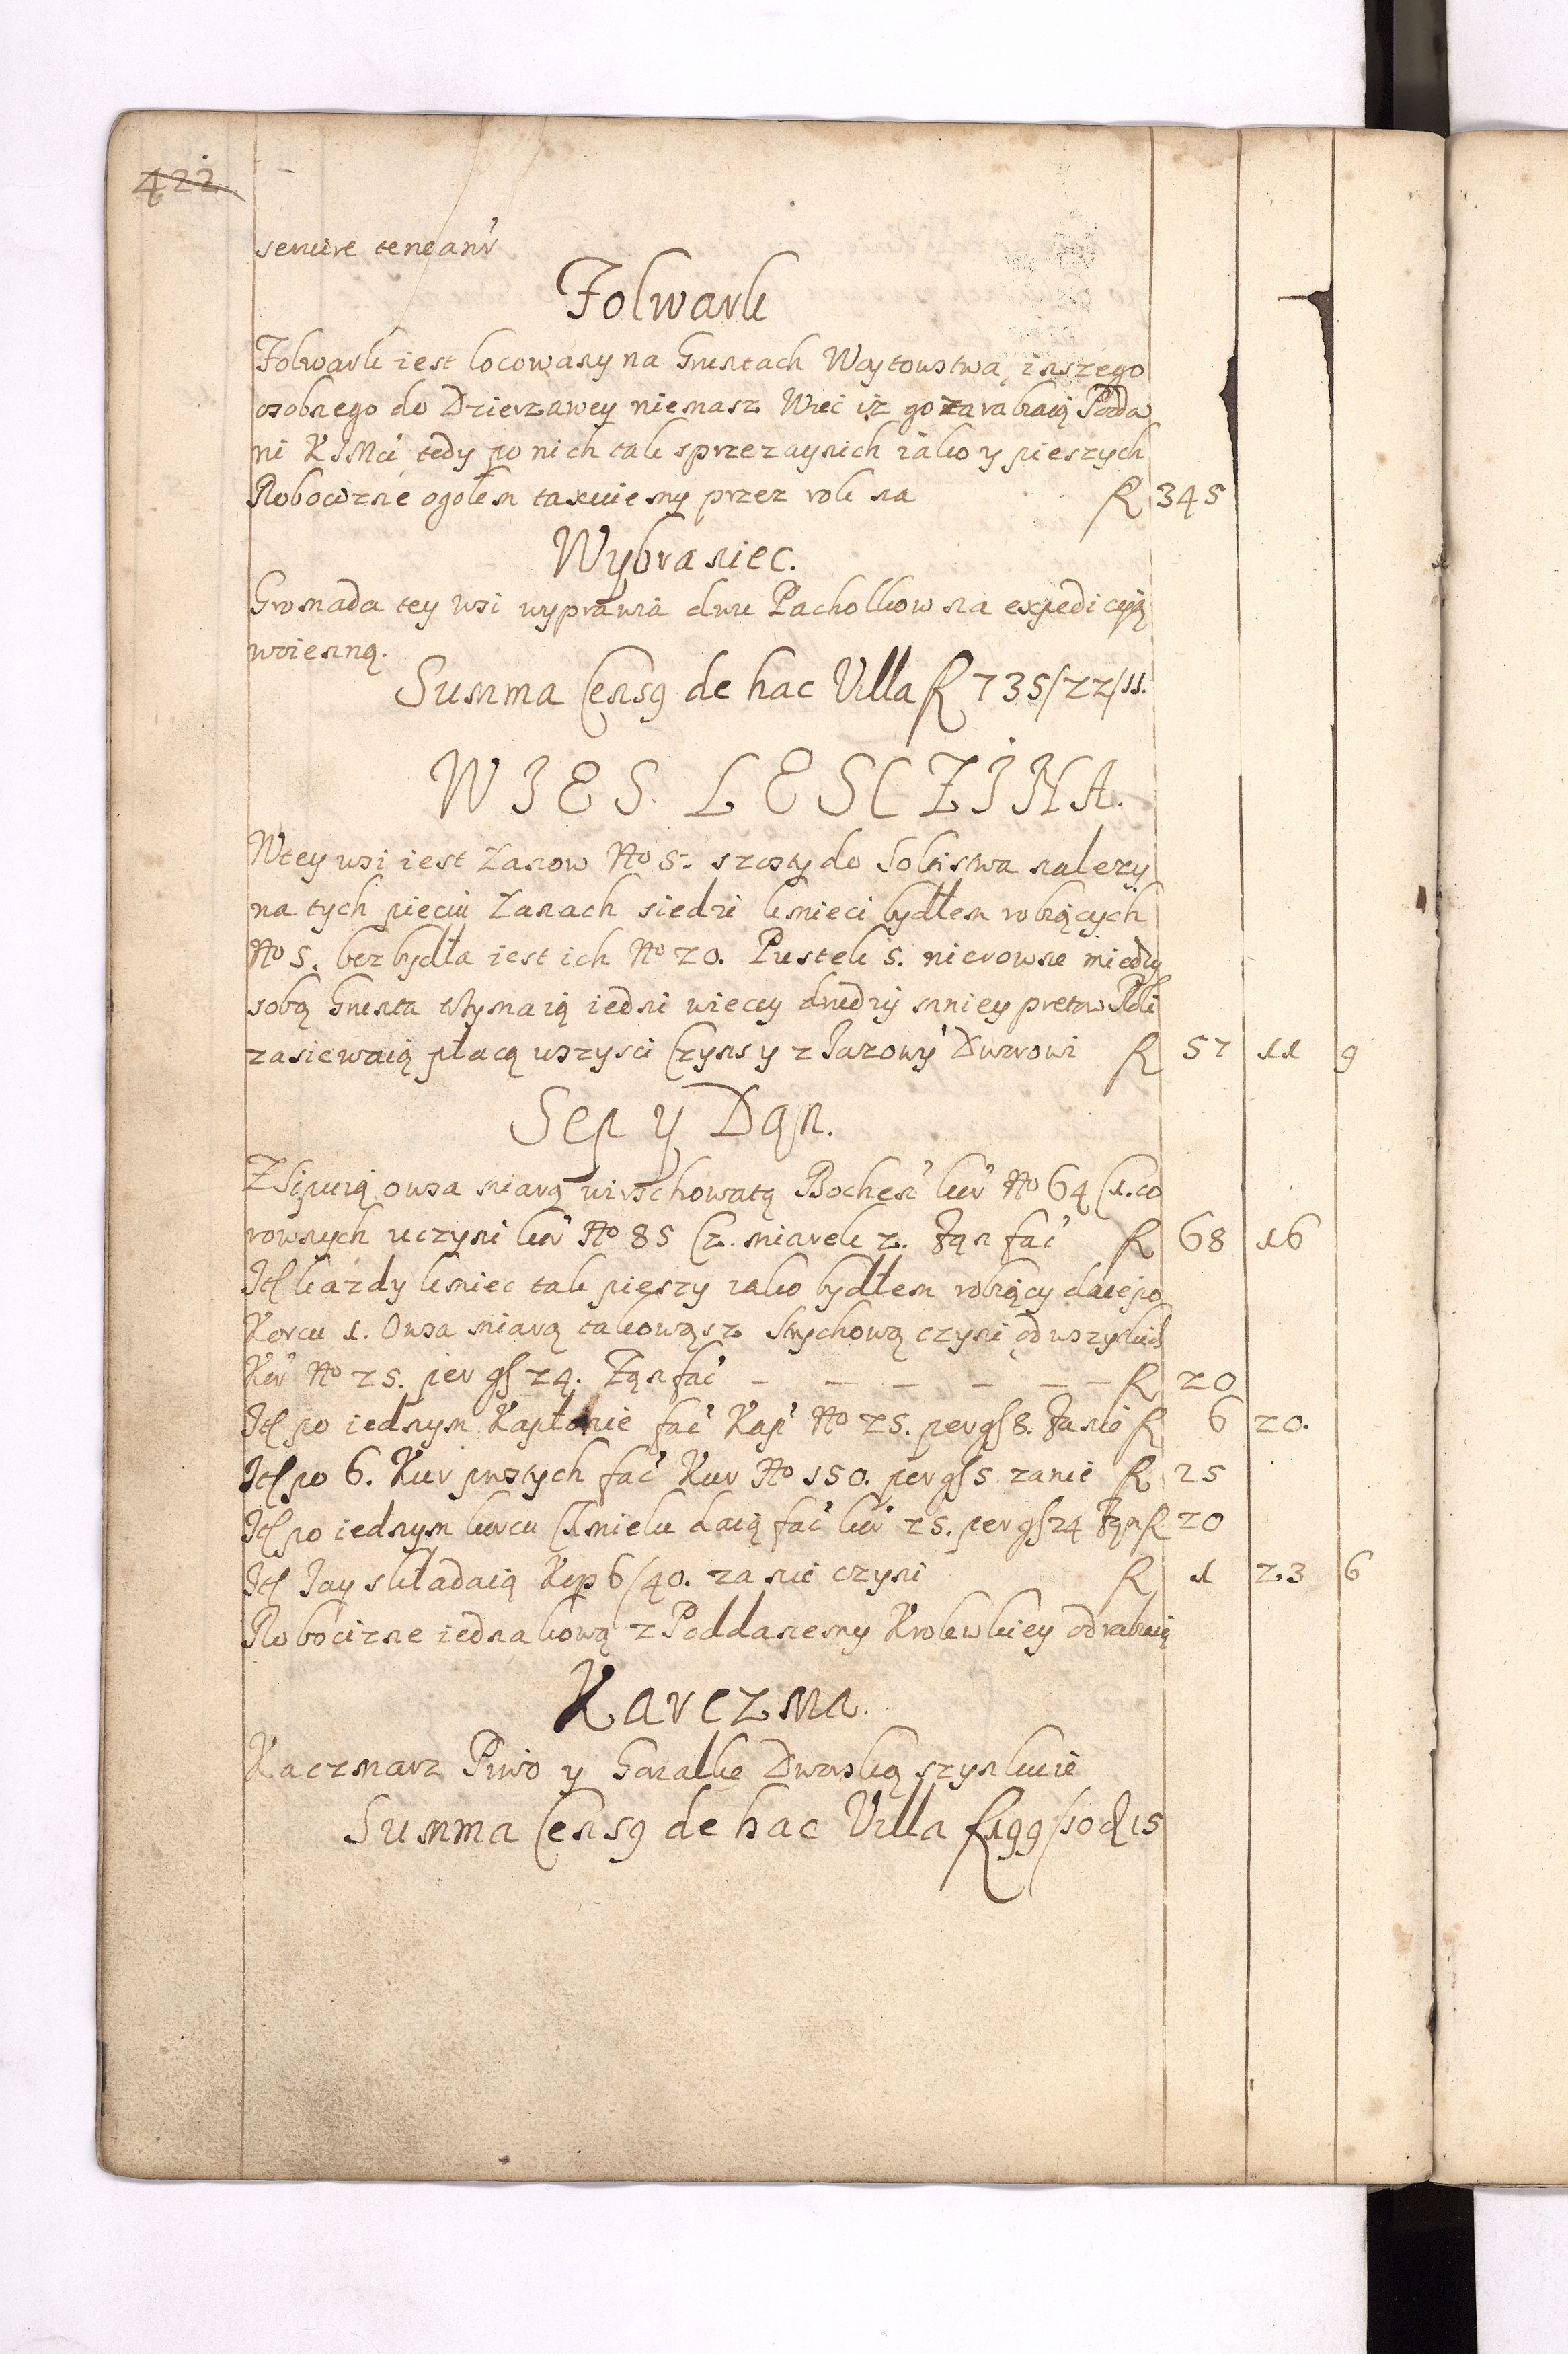 422
seruire teneant᷑
Folwark
Folwark iest locowany na Gruntach Woytowstwa, inszego
osobnego do Dzierzawey niemasz Więc iz go zarabiaią Podda
ni KJMci, tedy po nich tak sprzezaynich iako y pieszych
Robociznę ogołem taxuiemy przez rok na ƒ 345
Wybraniec.
Gromada tey wsi wyprawia dwu Pachołkow na expedicyią
woienną.
Summa Censꝰ de hac Villa ƒ 735/22/11.
WIES LESCZINA.
Wtey wsi iest Łanow No 5. szosty do Sołtistwa nalezy
na tych pięciu Łanach siedzi kmieci bydłem robiących
No 5. bez bydła iest ich No 20. Pustek 5. nierowne miedzy
sobą Grunta trzymaią iedni więcey drudzy mniey prętow Roli
zasiewaią płacą wszysci Czynsz y z Jazowy Dworowi ƒ 57 11 9
Sep y Dań.
Zsipuią owsa miarą wirzchowatą Bocheń kor No 64 Cw. 1. co
rownych uczyni kor No 85 Cz. miarek 2. Za n fac ƒ 68 16
Itē kazdy kmiec tak pieszy iako bydłem robiący daie po
Korcu 1. Owsa miarą takowąsz Strychową czyni od wszytkich
Kor No 25. per gſ 24. Za n fac — — — — — — ƒ 20
Itē po iednym Kapłonie fac Kap No 25. per gſ 8. Za nie ƒ 6 20.
Itē po 6. Kur prostych fac Kur No 150. per gſ 5. za nie ƒ 25
Itē po iednym korcu Chmielu daią fac kor 25. per gſ 24 Za n ƒ 20
Itē Jay składaią Kop 6/40. za nie czyni ƒ 1 23 6
Robociznę iednakową z Poddanemy Krolewkiey odrabiaią
Karczma.
Kaczmarz Piwo y Gorzałkę Dworską szynkuie
Summa Censꝰ de hac Villa ƒ 199/10 ₰ 15